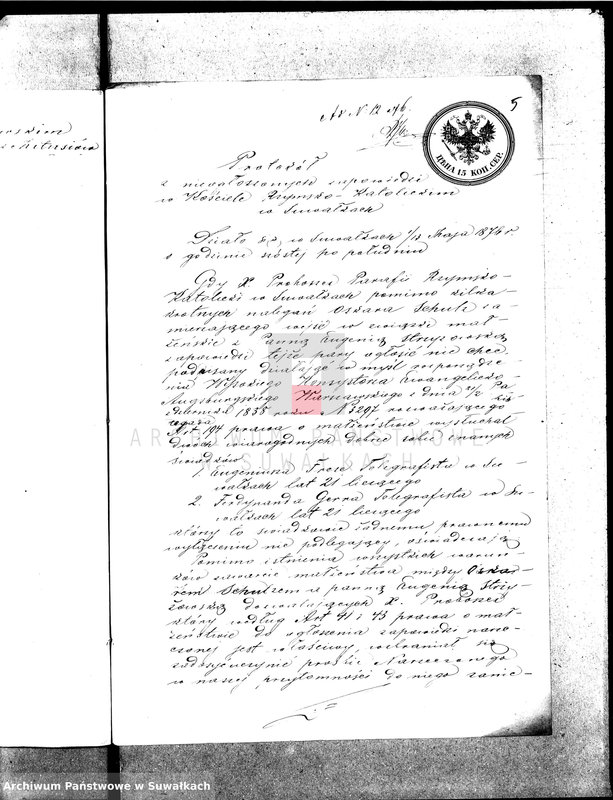 Ad N 12 76.
5
ЦѢНА 15 КОП. СЕР.
Protokół
z nieogłoszonych zapowiedzi
w Kościele Rzymsko-Katolickim
w Suwałkach
Działo się w Suwałkach 1/13 Maja 1876 r.
o godzinie szóstej po południu
Gdy X. Proboszcz Parafii Rzymsko-
Katolicki w Suwałkach pomimo kilka-
krotnych nalegań Oskara Schulc za-
mierzającego wejść w związki mał-
żeńskie z Panną Eugenią Stryżowską
zapowiedzi tejże pary ogłosić nie chce,
podpisany działając w myśl rozporządze-
nia Wysokiego Konsystorza Ewangelicko-
Augsburgskiego Warszawskiego z dnia Pa-
ździernika 1855 roku N 3207
Art 194 prawa o małżeństwie wysłuchał
dwóch wiarogodnych dobrze sobie znanych
świadków
1. Eugeniusza Frese Telegrafista w Su-
wałkach lat 21 liczącego
2. Ferdynanda Gerra Telegrafista w Su-
wałkach lat 21 liczącego
którzy to świadkowie żadnemu prawnemu
wyłączeniu nie podlegający, oświadczają
Pomimo istnienia wszystkich warun-
ków zawarcie małżeństwa między Oska-
rem Schulzem z panną Eugenią Stry-
żowską dozwalających X. Proboszcz
który według Art 41 i 43 prawa o mał-
żeństwie do ogłoszenia zapowiedzi narze-
czonej jest właściwy, wzbraniał się
zadosyćuczynić prośbie Narzeczonego
w naszej przytomności do niego zanie-
ARCHIWUM PAŃSTWOWE
W SUWAŁKACH
Archiwum Państwowe w Suwałkach